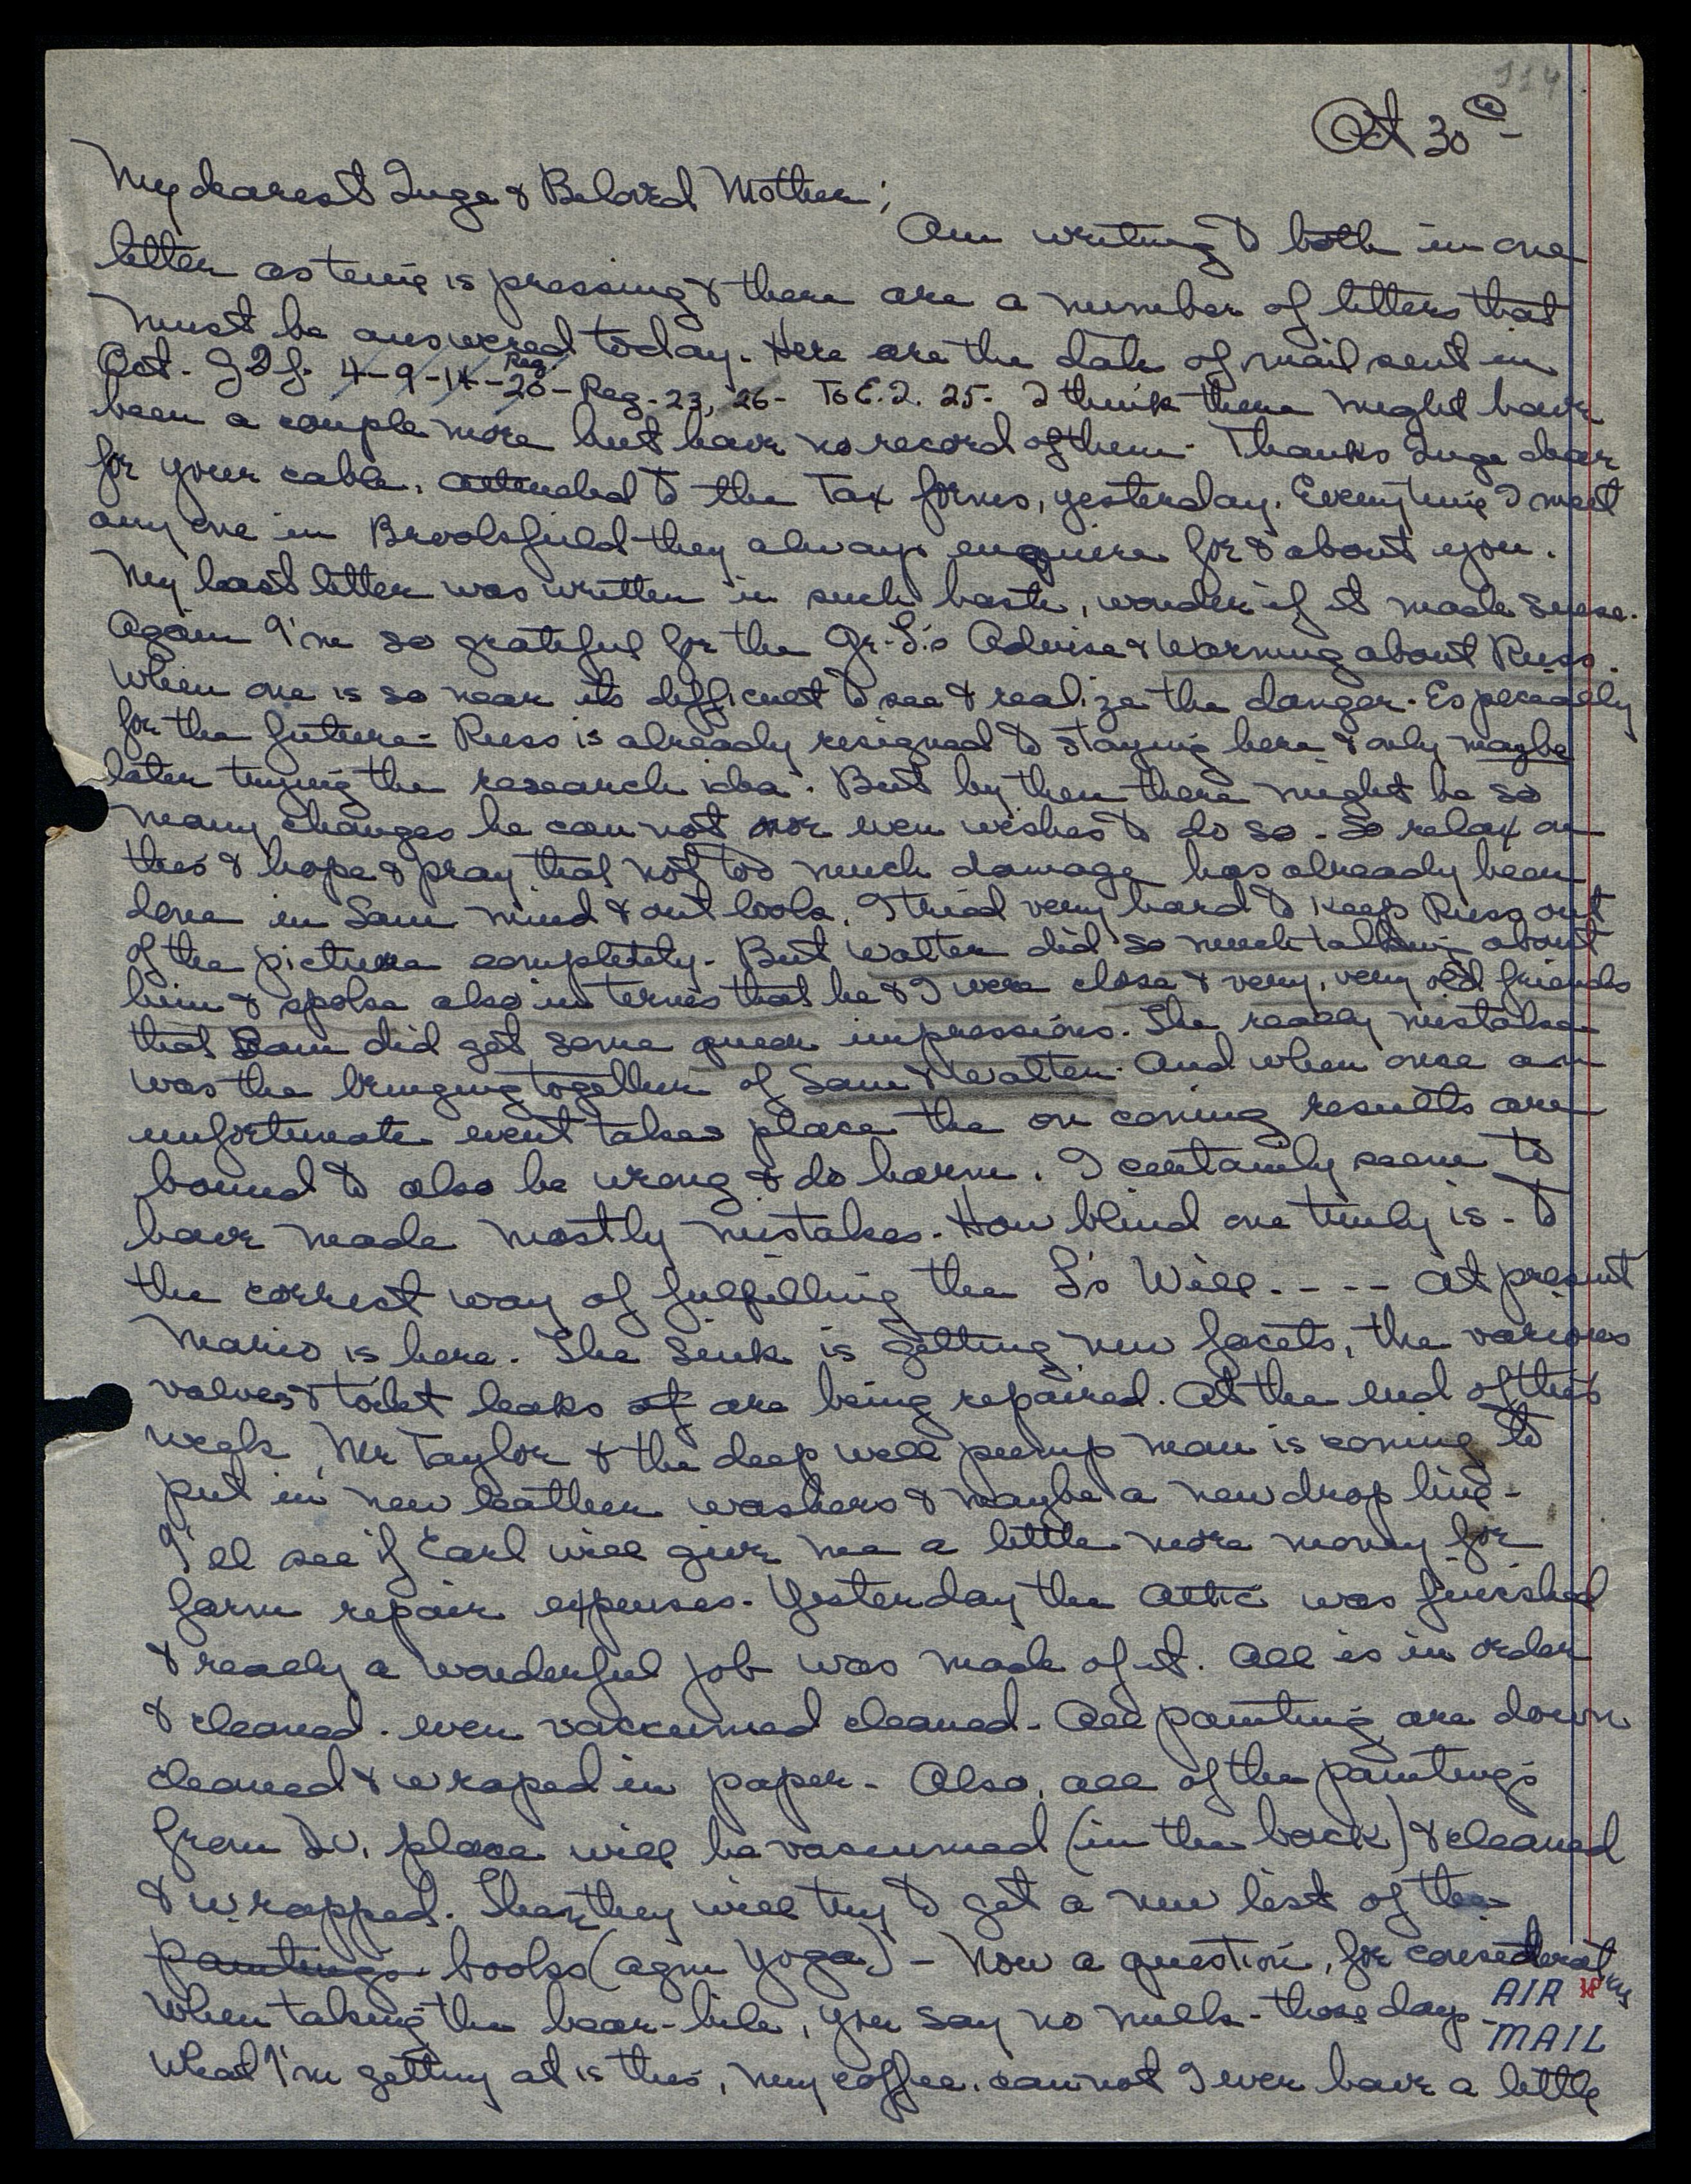 114
Oct 30th
My dearest Inge & Beloved Mother;
Am writing to both in one
letter as time is pressing & there are a number of letters that
must be answered today. Here are the date of mail sent in
Oct. 4-9-14-Reg. 20-Reg-23, 26- To E.I. 25- I think there might have
been a couple more but have no record of them. Thanks Inge dear
for your cable. attended to the Tax forms, yesterday. Everytime I meet
any one in Brookfield they always enquire for & about you.
My last letter was written in such haste, wonder if it made sense.
Again I'm so grateful for the Gr-L's Advise & Warning about Russ.
When one is so near its difficult to see & realize the danger. Especially
for the future- Russ is already resigned to staying here & only maybe
later trying the research idea. But by then there might be so
many changes he can not nor even wishes to do so - So relax on
this & hope & pray that not too much damage has already been
done in Sam mind & outlook. I tried very hard to keep Russ out
of the picture completely. But Walter did so much talking about
him & spoke also in terms that he & I were close & very, very old friends
that Sam did get some queer impressions. The really mistake
was the bringing together of Sam & Walter. And when once an
unfortunate event takes place the on coming results are
bound to also be wrong & do harm. I certainly seem to
have made mostly mistakes. How blind one truly is - to
the correct way of fulfilling the L's Will. - - - - At present
Mario is here. The Sink is getting new facets, the various
valves & toilet leaks of are being repaired. At the end of this
week Mr Taylor & the deep well pump man is coming to
put in new leather washers & maybe a new drop line -
I'll see if Earl will give me a little more money for
farm repair expenses. Yesterday the attic was finished
& really a wonderful job was made of it. All is in order
& cleaned. even vaccumed cleaned. All painting are down
cleaned & wraped in paper - Also, all of the paintings
from place will be vacumed (in the back) & cleaned
& wrapped. Then they will try to get a new list of the
paintings books (agni Yoga) - Now a question, for consideration
When taking the bear-bile, you say no milk - those days -
What I'm getting at is this, my coffee. cannot I even have a little
AIR
MAIL